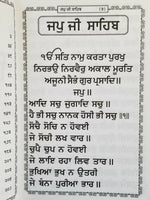 ਜਪੁ ਜੀ ਸਾਹਿਬ
ਜਪੁ ਜੀ ਸਾਹਿਬ
ੴ ਸਤਿ ਨਾਮੁ ਕਰਤਾ ਪੁਰਖੁ
ਨਿਰਭਉ ਨਿਰਵੈਰੁ ਅਕਾਲ ਮੂਰਤਿ
ਅਜੂਨੀ ਸੈਭੰ ਗੁਰ ਪ੍ਰਸਾਦਿ॥
ਜਪੁ॥
ਆਦਿ ਸਚੁ ਜੁਗਾਦਿ ਸਚੁ॥
ਹੈ ਭੀ ਸਚੁ ਨਾਨਕ ਹੋਸੀ ਭੀ ਸਚੁ॥੧॥
ਸੋਚੈ ਸੋਚਿ ਨ ਹੋਵਈ
ਜੇ ਸੋਚੀ ਲਖ ਵਾਰ॥
ਚੁਪੈ ਚੁਪ ਨ ਹੋਵਈ
ਜੇ ਲਾਇ ਰਹਾ ਲਿਵ ਤਾਰ॥
ਭੁਖਿਆ ਭੁਖ ਨ ਉਤਰੀ
ਜੇ ਬੰਨਾ ਪੁਰੀਆ ਭਾਰ॥